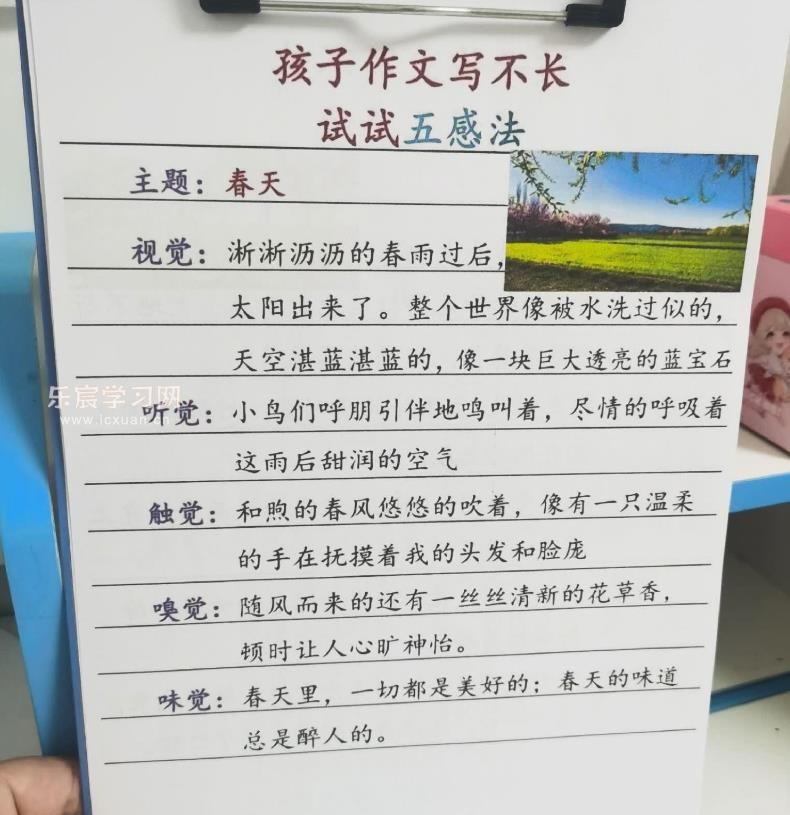 孩子作文写不长
试试五感法
主题：春天
视觉：淅淅沥沥的春雨过后，
太阳出来了。整个世界像被水洗过似的，
天空湛蓝湛蓝的，像一块巨大透亮的蓝宝石
乐宸学习网
www.lcxuan.cn
听觉：小鸟们呼朋引伴地鸣叫着，尽情的呼吸着
这雨后甜润的空气
触觉：和煦的春风悠悠的吹着，像有一只温柔
的手在抚摸着我的头发和脸庞
嗅觉：随风而来的还有一丝丝清新的花草香，
顿时让人心旷神怡。
味觉：春天里，一切都是美好的；春天的味道
总是醉人的。